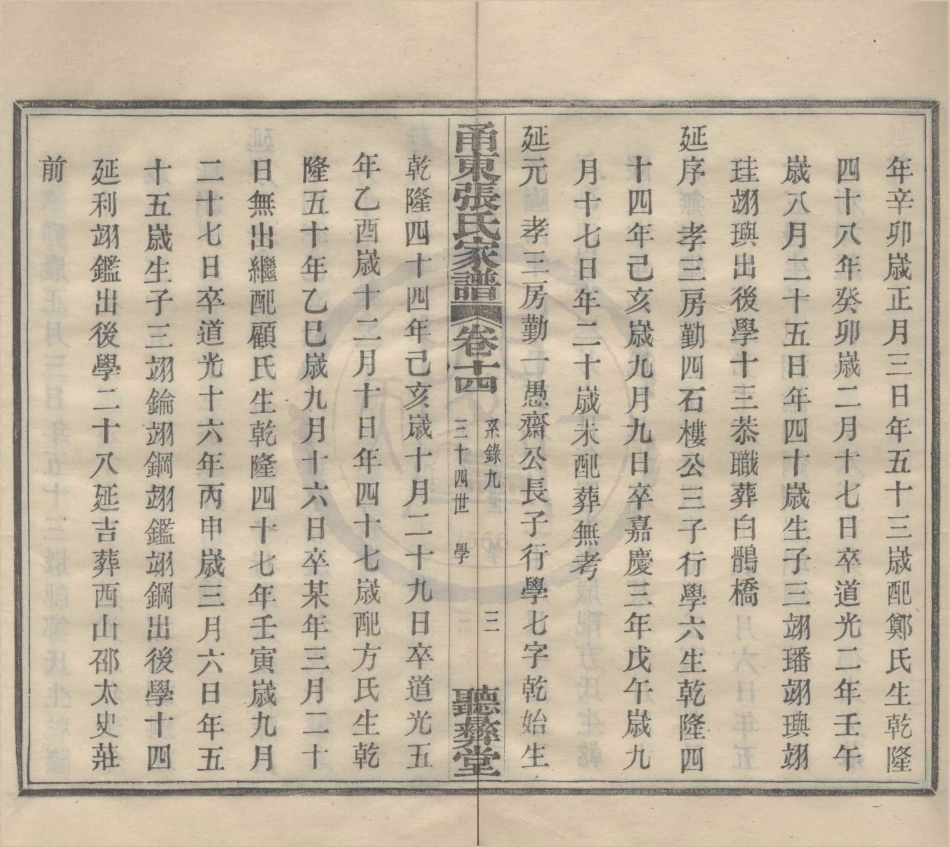 年辛卯歲正月三日年五十三歲配鄭氏生乾隆
四十八年癸卯歲二月十七日卒道光二年壬午
歲八月二十五日年四十歲生子三翊璠翊璵翊
珪翊璵出後學十三恭職葬白鶴橋
延序孝三房勤四石樓公三子行學六生乾隆四
十四年己亥歲九月九日卒嘉慶三年戊午歲九
月十七日年二十歲未配葬無考
延元 孝三房勤一愚齋公長子行學七字乾始生
甬東張氏家譜 卷十四 系錄九 三十四世 學 三 聽彝堂
乾隆四十四年己亥歲十月二十九日卒道光五
年乙酉歲十二月十日年四十七歲配方氏生乾
隆五十年乙巳歲九月十六日卒某年三月二十
日無出繼配顧氏生乾隆四十七年壬寅歲九月
二十七日卒道光十六年丙申歲三月六日年五
十五歲生子三翊錀翊鋼翊鑑翊鋼出後學十四
延利翊鑑出後學二十八延吉葬西山邵太史莊
前